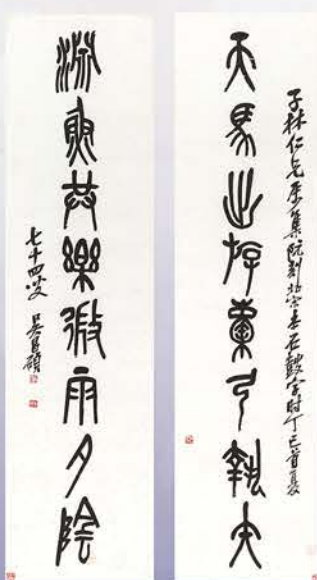 子林仁兄屬集阮刻北宋本石鼓字時丁巳首夏
天馬出斿橐弓執矢
淵魚共樂微雨夕陰
七十四叟 吳昌碩